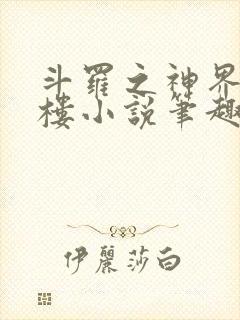 斗羅之神界
樓小說筆趣
伊麗莎白